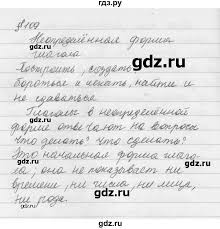 № 109
Неопределённая форма
глагола
Построить, создать
бороться и искать, найти и
не сдаваться.
Глаголы в неопределённой
форме отвечают на вопросы
что делать? что сделать?
Это начальная форма глаго-
ла; она не показывает ни
времени, ни числа, ни лица,
ни рода.
gdz.ru
gdz.ru
gdz.ru
gdz.ru
gdz.ru
gdz.ru